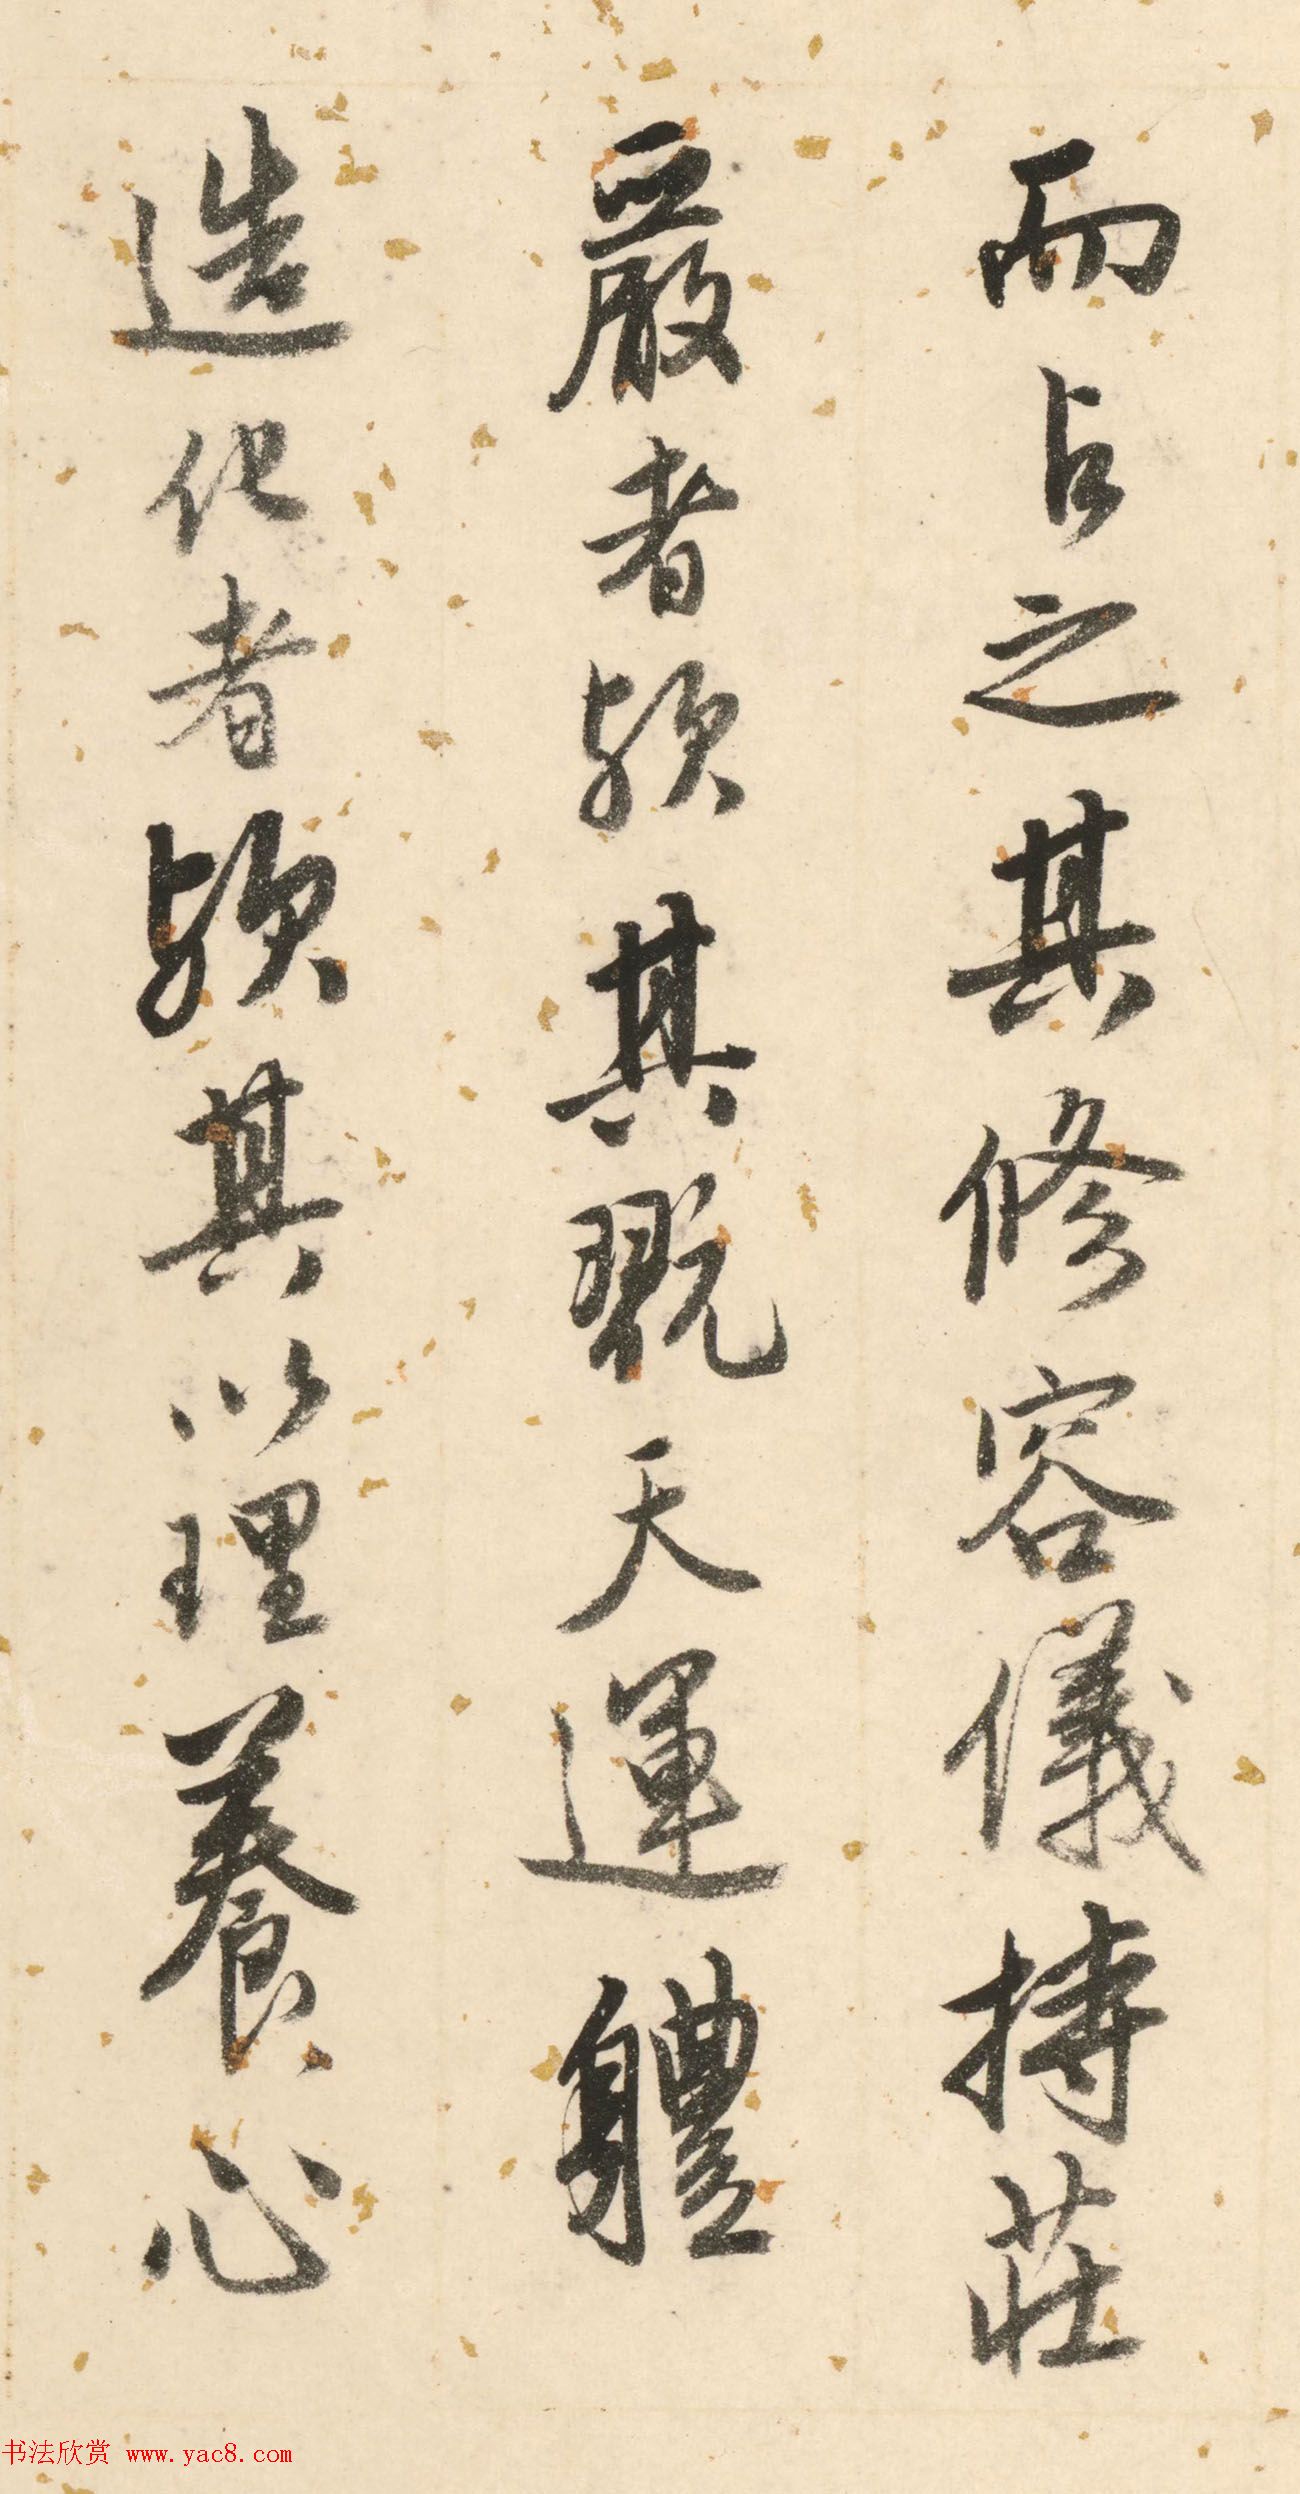 而占之其修容儀持莊
嚴者欤其翫天運軆
造化者欤其以理養心
书法欣赏 www.yac8.com